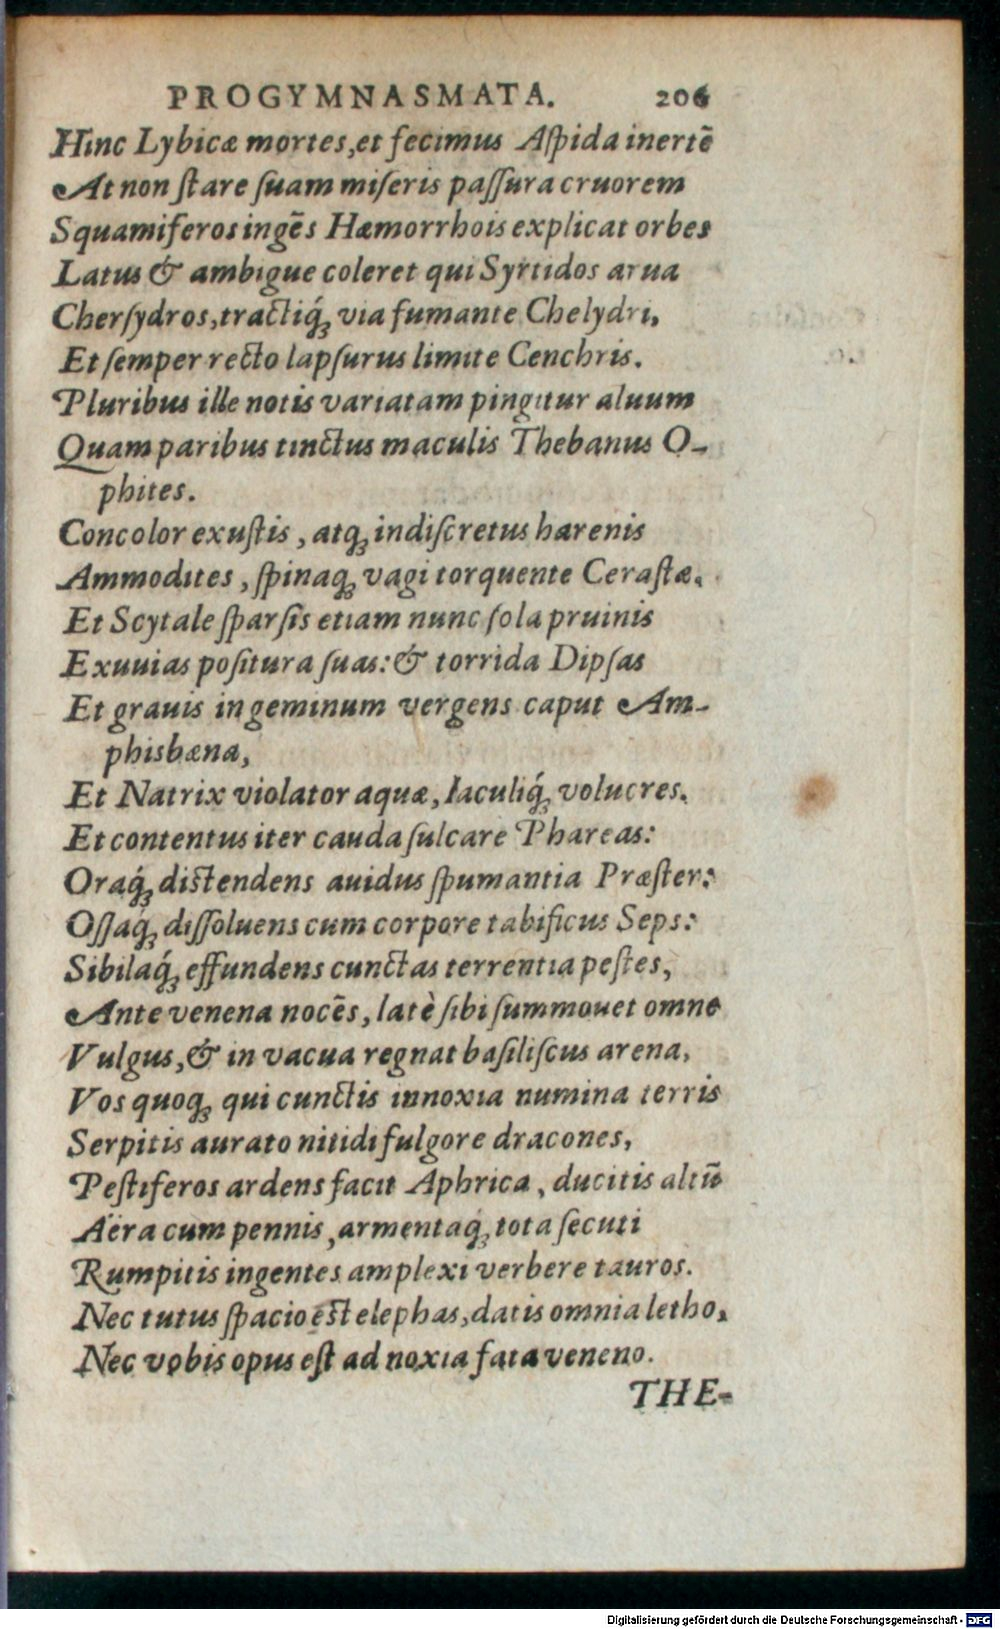 PROGYMNASMATA. 206
Hinc Lybicæ mortes, et fecimus Aſpida inertē
At non ſtare ſuam miſeris paſſura cruorem
Squamiferos ingēs Hæmorrhois explicat orbes
Latus & ambigue coleret qui Syrtidos arua
Cherſydros, tractiq́ꝫ via fumante Chelydri,
Et ſemper recto lapſurus limite Cenchris.
Pluribus ille notis variatam pingitur aluum
Quam paribus tinctus maculis Thebanus O-
phites.
Concolor exuſtis, atqꝫ indiſcretus harenis
Ammodites, ſpinaqꝫ vagi torquente Ceraſtæ.
Et Scytale ſparſis etiam nunc ſola pruinis
Exuuias poſitura ſuas: & torrida Dipſas
Et grauis in geminum vergens caput Am-
phisbæna,
Et Natrix violator aquæ, Iaculiq́ꝫ volucres.
Et contentus iter cauda ſulcare Phareas:
Oraq́ꝫ diſtendens auidus ſpumantia Præſter:
Oſſaq́ꝫ diſſoluens cum corpore tabificus Seps:
Sibilaq́ꝫ effundens cunctas terrentia peſtes,
Ante venena nocēs, latè ſibi ſummouet omne
Vulgus, & in vacua regnat baſiliſcus arena,
Vos quoqꝫ qui cunctis innoxia numina terris
Serpitis aurato nitidi fulgore dracones,
Peſtiferos ardens facit Aphrica, ducitis altū
Aëra cum pennis, armentaq́ꝫ tota ſecuti
Rumpitis ingentes amplexi verbere tauros.
Nec tutus ſpacio eſt elephas, datis omnia letho,
Nec vobis opus eſt ad noxia fata veneno.
THE-
Digitalisierung gefördert durch die Deutsche Forschungsgemeinschaft - DFG